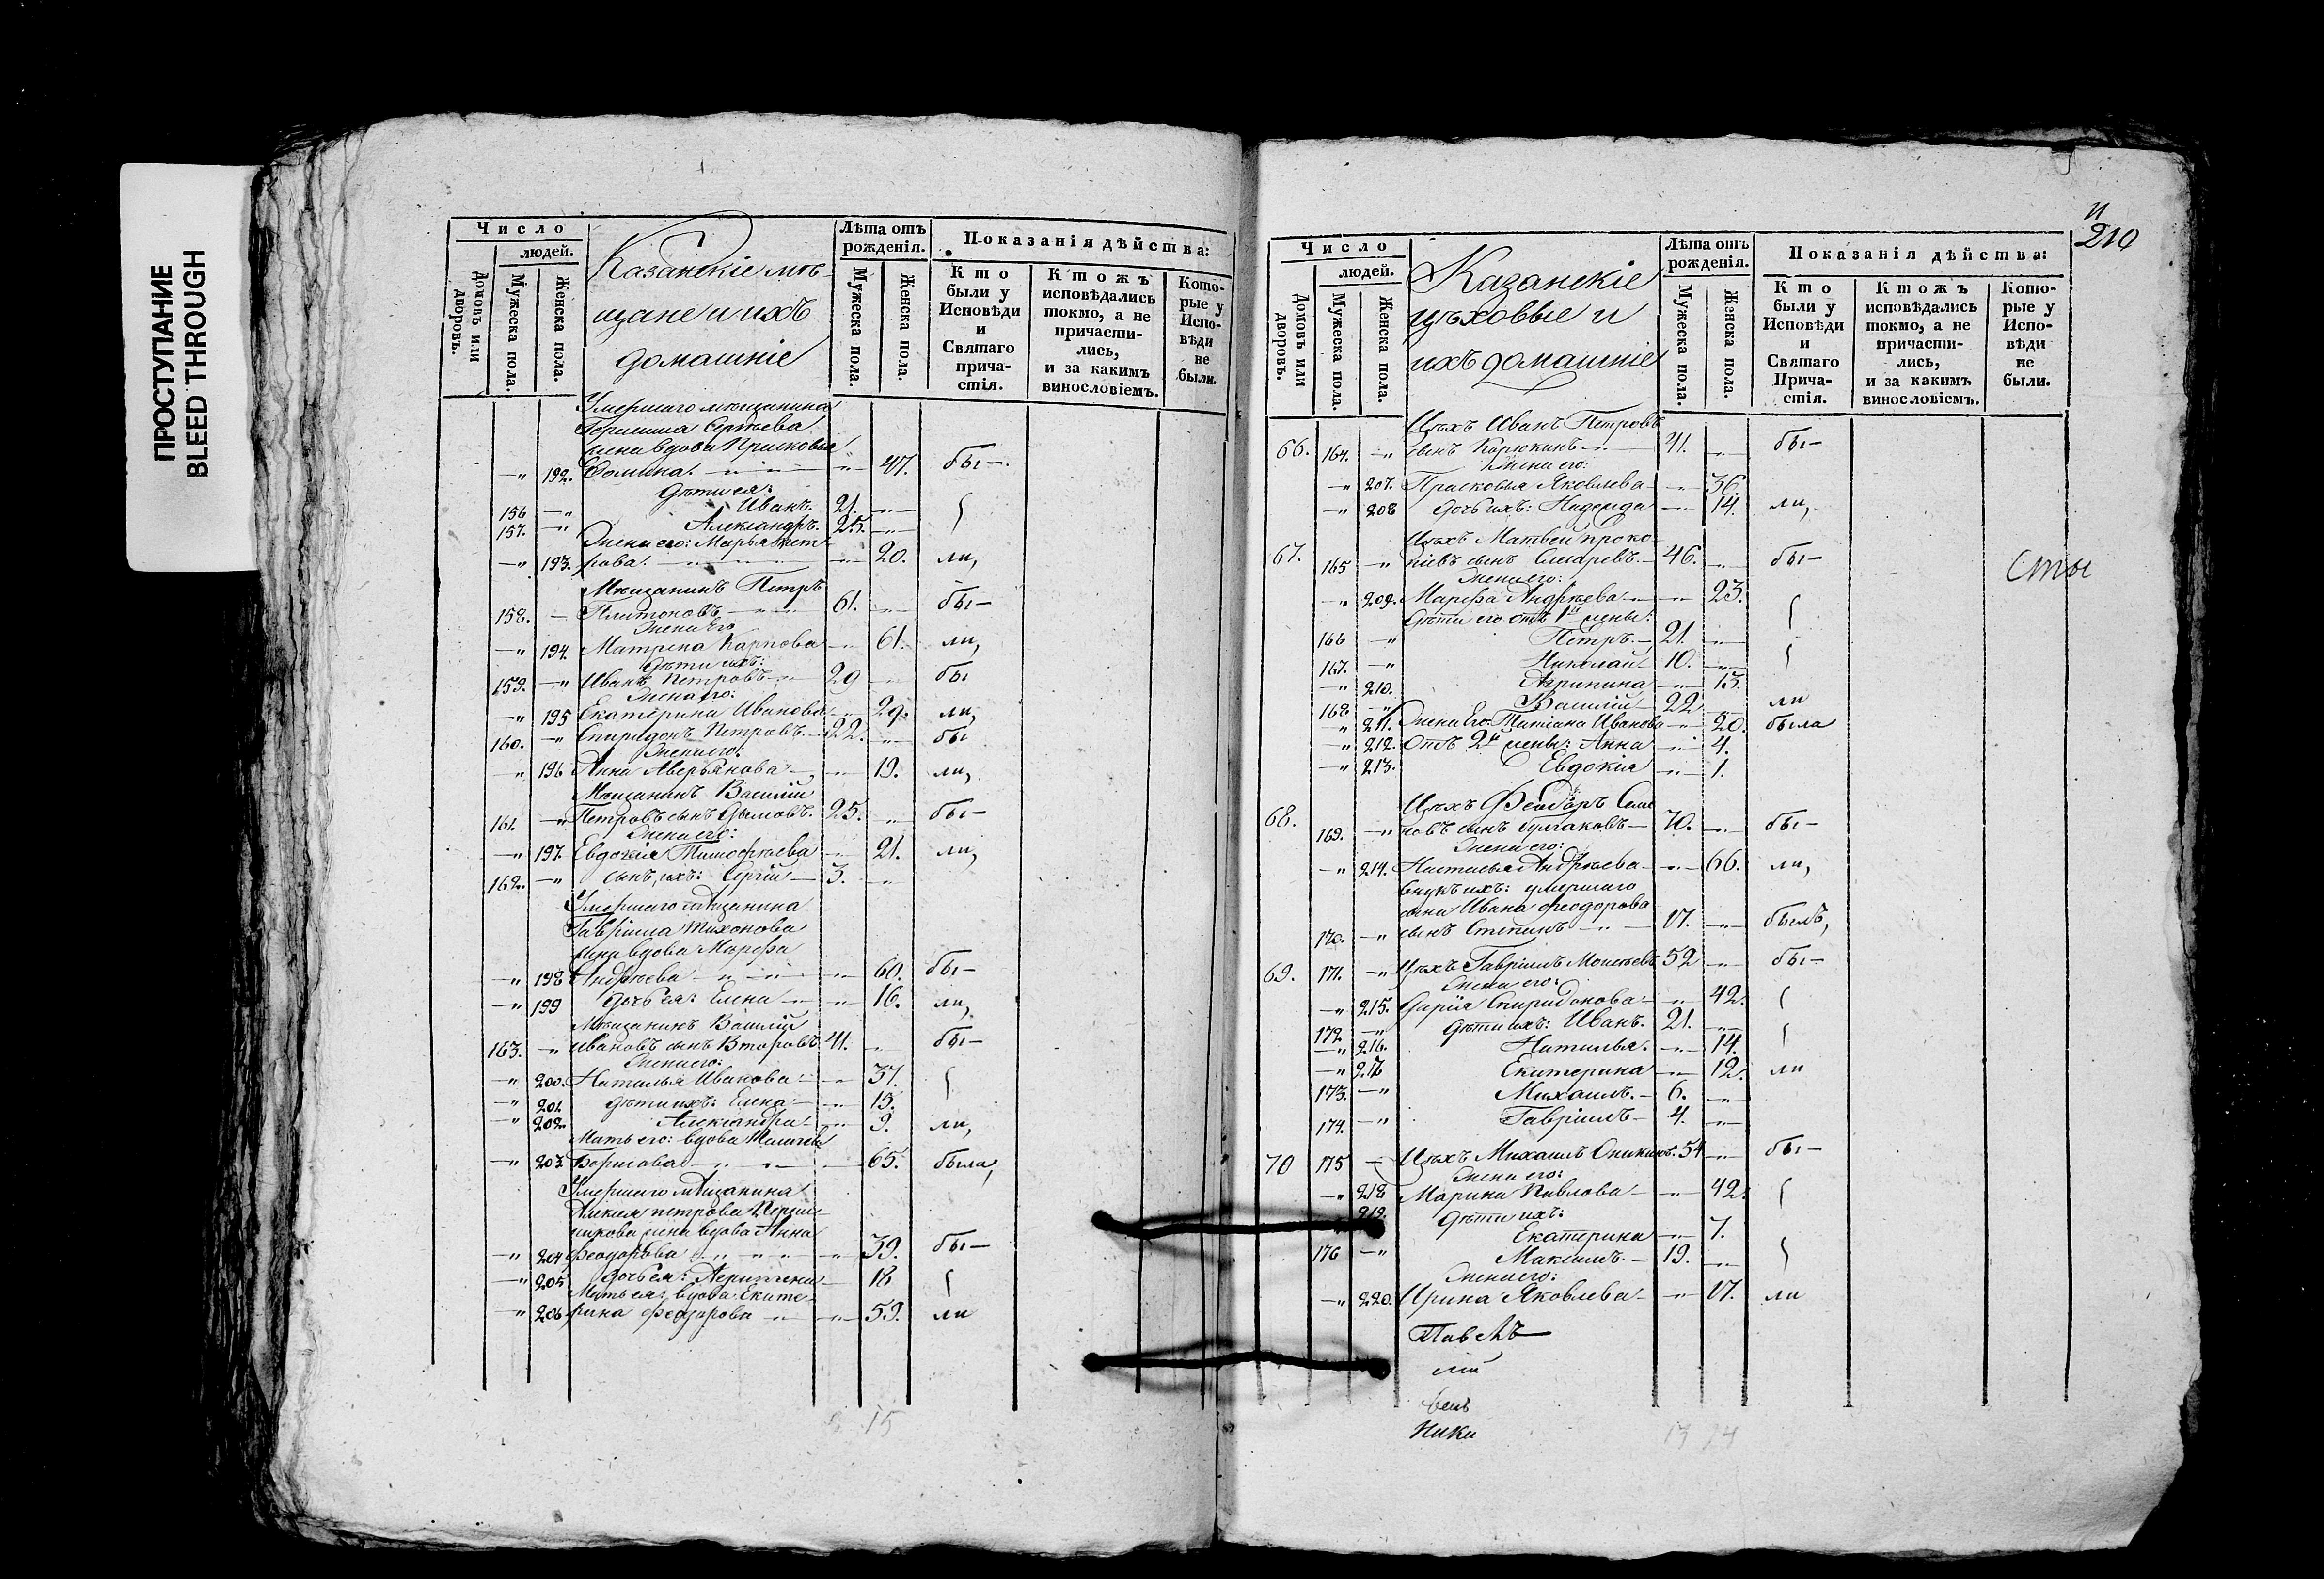 ПРОСТУПАНИЕ
BLEED THROUGH
Число
людей.
Домовъ или дворовъ.
Мужеска пола.
Женска пола.
Казанскіе мѣ-
щане и ихъ
домашніе
Лѣта отъ рожденія.
Мужеска пола.
Женска пола.
Показанія дѣйства:
Кто были у Исповѣди и Святаго прича-стія.
Ктожъ исповѣдались токмо, а не причасти-лись, и за какимъ винословіемъ.
Кото-рые у Испо-вѣди не были.
Умершаго мѣщанина
Сергѣева
жена вдова Прасковья
192. Фомина. 47. бы-
Дѣти ея:
156 Иванъ. 21.
157. Александръ. 25.
Жена его: Марья Пет-
193. рова. 20. ли,
Мѣщанинъ Петръ
158. Платоновъ 61. бы-
Жена Его
194 Матрена Карпова 61. ли,
Дѣти ихъ:
159. Иванъ Петровъ 29 бы
Жена его:
195 Екатерина Иванова 29. ли,
160. Спиридонъ Петровъ 22. бы
Жена его:
196 Анна Аверьянова 19. ли,
Мѣщанинъ Василій
161. Петровъ сынъ 25. бы-
Жена его:
197. Евдокія Тимофѣева 21. ли,
162. сынъ ихъ: Сергій 3.
Умершаго мѣщанина
Гавріила Тихонова
жена вдова Марфа
198 Андрѣева 60. бы-
199 дочь ея: Елена 16. ли,
Мѣщанинъ Василій
163. Ивановъ сынъ Второвъ. 41. бы-
Жена его:
200. Наталья Иванова 37.
201. дѣти ихъ: Елена 15.
202. Александра 9. ли,
Мать его: вдова
203. Борисова 65. была,
Умершаго мѣщанина
Алексея Петрова
жена вдова Анна
204 Феодорова 39. бы-
205 дочь ея: 18
Мать ея: вдова Екате-
206 рина Феодорова 59. ли
15
210
Число
людей.
Домовъ или дворовъ.
Мужеска пола.
Женска пола.
Казанскіе
цѣховые и
ихъ домашніе
Лѣта отъ рожденія.
Мужеска пола.
Женска пола.
Показанія дѣйства:
Кто были у Исповѣди и Святаго Прича-стія.
Ктожъ исповѣдались токмо, а не причасти-лись, и за какимъ винословіемъ.
Кото-рые у Испо-вѣди не были.
Цѣхъ Иванъ Петровъ
66. 164. сынъ Корюкинъ 41. бы-
Жена его:
207. Прасковья Яковлева 36.
208 дочь ихъ: Надежда 14. ли,
Цѣхъ Матвей Проко-
67. 165 піевъ сынъ 46. бы-
Сты
Жена его:
209. Марфа Андрѣева 23.
Дѣти его отъ 1й жены:
166 Петръ 21.
167. Николай 10.
210. Агрипина 13.
168 Василій 22 ли
211. Жена Его: Татіана Иванова 20. была
212. Отъ 2й жены: Анна 4.
213. Евдокія 1.
Цѣхъ Феодоръ Семе
68. 169. новъ сынъ Булгаковъ 70. бы-
Жена его:
214. Настасья Андрѣева 66. ли,
Внукъ ихъ: умершаго
сына Ивана Феодорова
170. сынъ Степанъ 17. былъ,
69. 171. Цѣхъ Гавріилъ Моисѣевъ 52 бы-
Жена его:
215. Дарія Спиридонова 42.
172 дѣти ихъ: Иванъ. 21.
216. Наталья. 14.
217 Екатерина 12. ли
173. Михаилъ. 6.
174. Гавріилъ 4.
70 175 Цѣхъ Михаилъ Оникинъ. 54 бы-
Жена его:
218 Марина Павлова 42.
219. Дѣти ихъ:
Екатерина 7.
176 Максимъ. 19.
Жена его:
220. Ирина Яковлева 17. ли
Павелъ
Ники
13 14